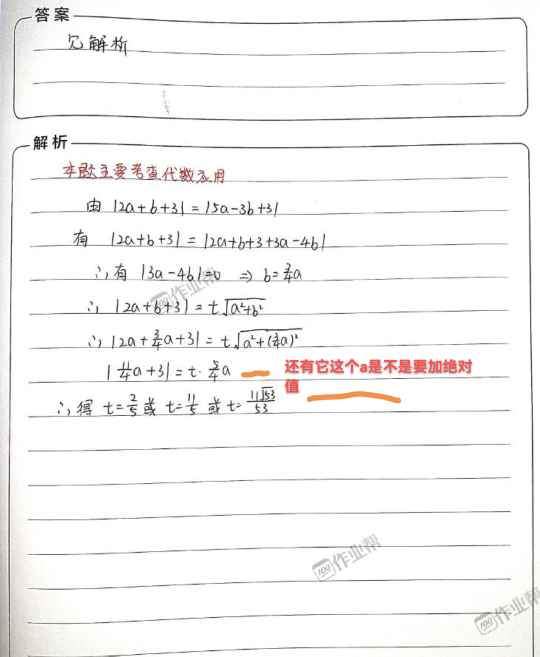 答案
见解析
解析
本题主要考查代数应用
由 |2a+b+3|=|5a-3b+3|
有 |2a+b+3|=|2a+b+3+3a-4b|
∴有 |3a-4b|=0 ⇒ b=¾a
∴ |2a+b+3|=t√a²+b²
∴ |2a+¾a+3|=t√a²+(¾a)²
|11/4a+3|=t·5/4a
还有它这个a是不是要加绝对值
∴得 t=2/5或 t=11/5 或 t=11√53/53
作业帮
作业帮
作业帮